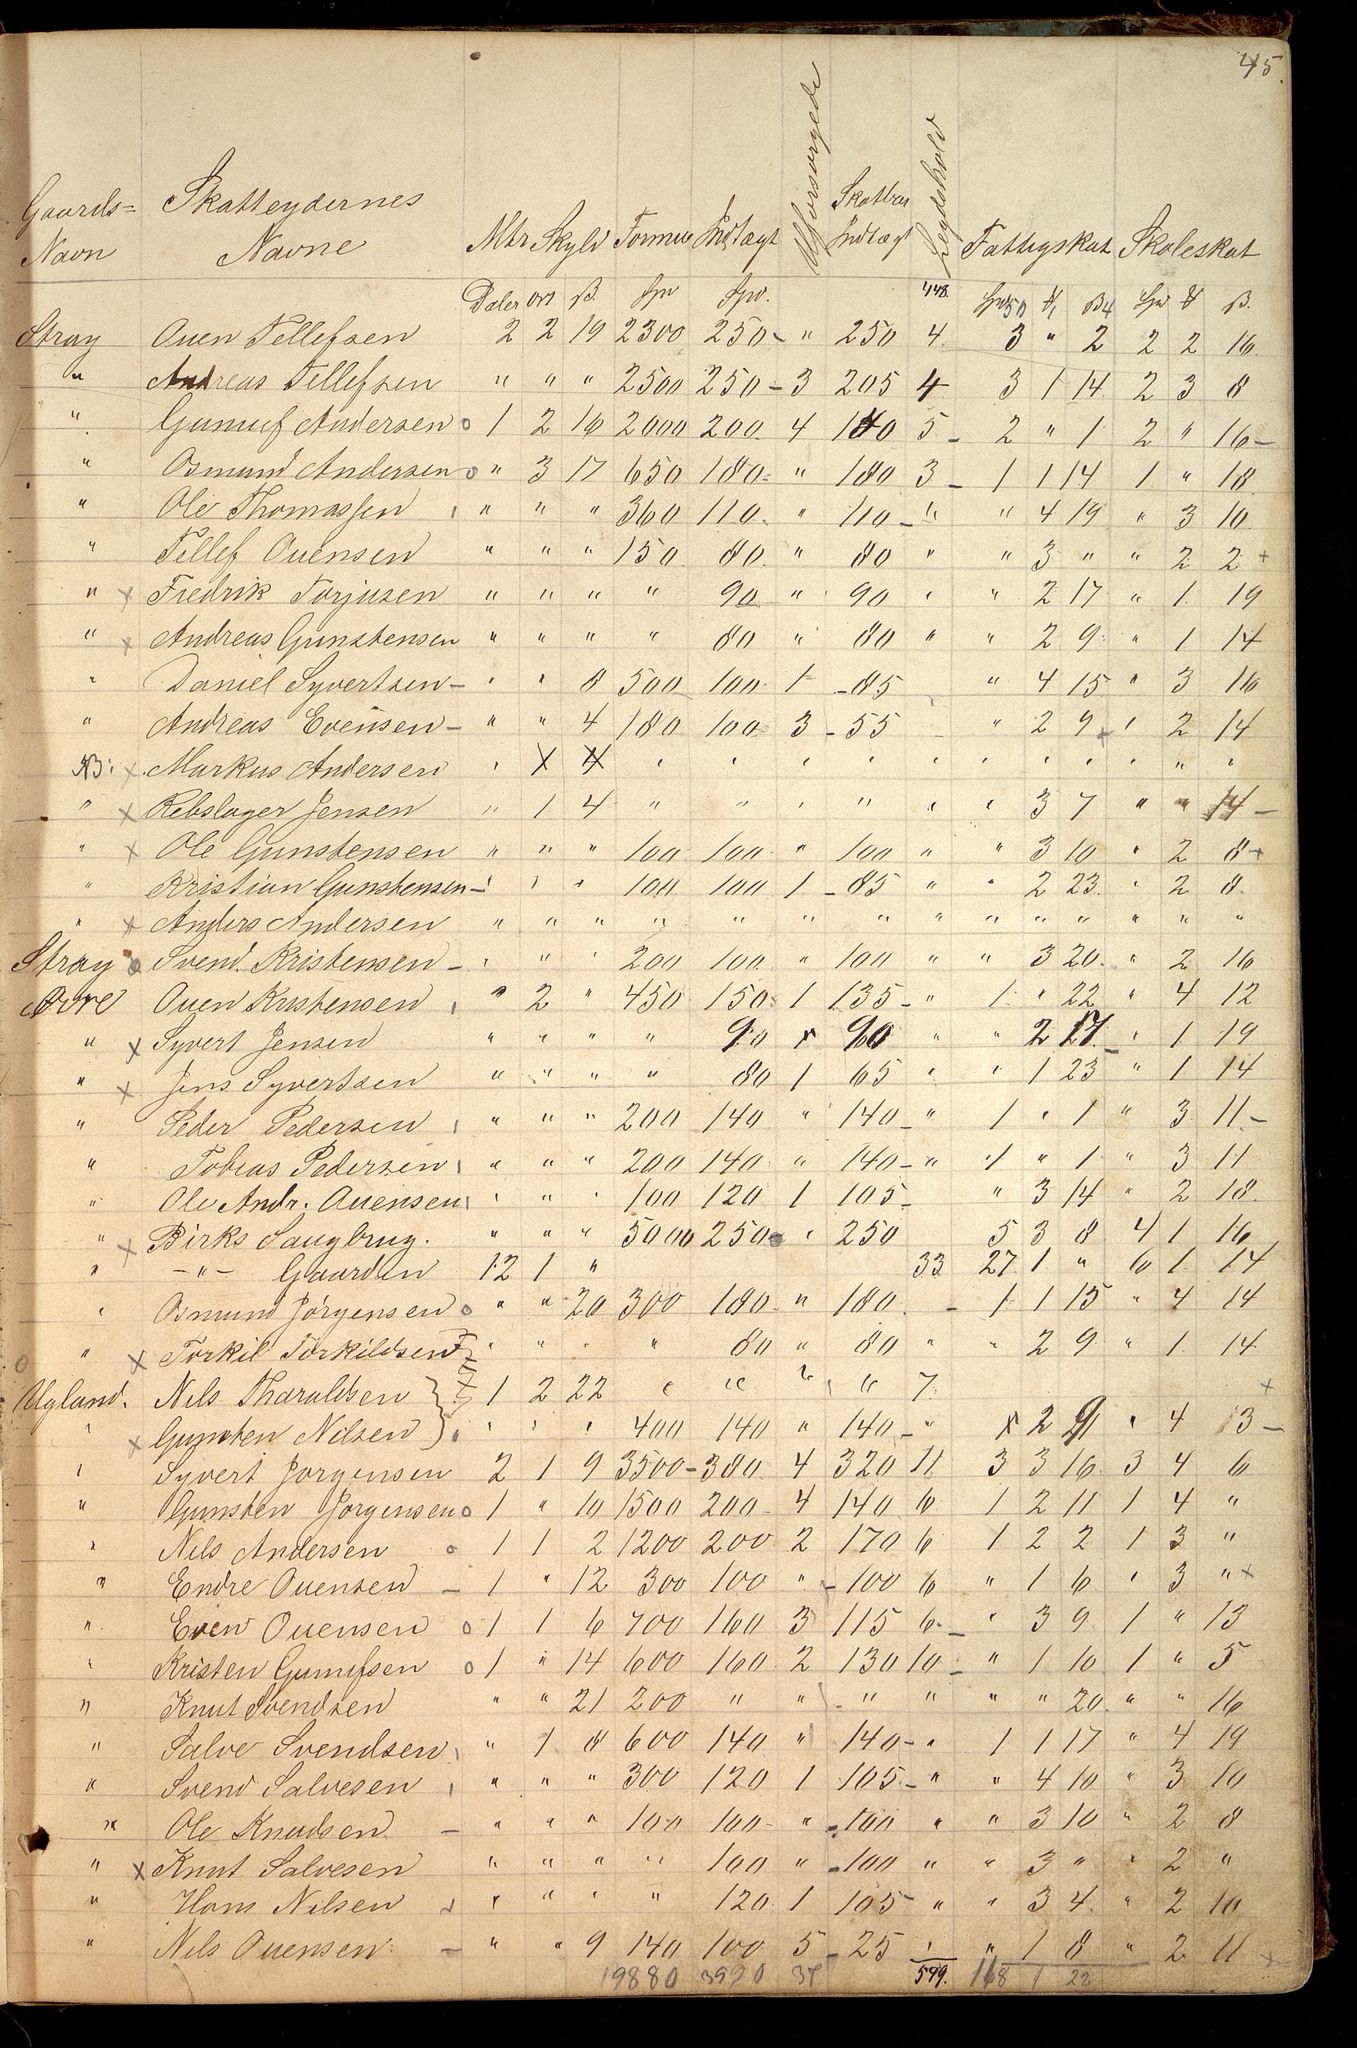 45.
Gaards= Skatteydernes Uforsørgede Skattbar Legdehold
Navn Navne Mtr Skyld Formue Indtægt Indtægt Fattigskat Skoleskat
Daler ort ß. Spd Spd. 448. Spd 50 1 ß 4 Spd ß.
Stray Ouen Tellefsen 2 2 19 2300 250 – " 250 4 3 " 2 2 2 16
" Andreas Tellefsen " " " 2500 250 – 3 205 4 3 1 14 2 3 8
" Gunuf Andersen o 1 2 16 2000 200 4 140 5 – 2 " 1 2 " 16 –
" Osmund Andersen o " 3 17 650 180 " 180 3 – 1 1 14 1 " 18
" Ole Thomassen " " " 360 110 " 110 – " " 4 19 " 3 10
" Tellef Ouensen " " " 150 80 " 80 " " 3 " " 2 2 +
" x Fredrik Torjusen " " " " 90 " 90 " " 2 17 " 1 19
" x Andreas Gunstensen " " " " 80 " 80 " " 2 9 " 1 14
" Daniel Syvertsen – " " 8 500 100 1 – 85 " 4 15 " 3 16
" Andreas Evensen – " " 4 180 100 3 – 55 " 2 9 " 2 14
NB: x Markus Andersen " x 4 " " " " " " " " " " "
" x Rebslager Jensen " 1 4 " " " " " " 3 7 " " 14 –
" x Ole Gunstensen " " " 100 100 " 100 " " 3 10 " 2 8 +
" Kristian Gunstensen – " " " 100 100 1 – 85 " " 2 23 " 2 8
" x Anders Andersen " " " " " " " " " " " " " "
Stray o Svend Kristensen – " " " 200 100 " 100 " " 3 20 " 2 16
Øvre Ouen Kristensen " 2 " 450 150 1 135 – " 1 " 22 " 4 12
" x Syvert Jensen " " " " 90 " 90 " " 2 17 – " 1 19
" x Jens Syvertsen " " " " 80 1 65 " " 1 23 " 1 14
" Peder Pedersen " " " 200 140 " 140 – " 1 " 1 " 3 11 –
" Tobias Pedersen " " " 200 140 " 140 – " 1 " 1 " 3 11
" Ole Andr. Ouensen " " " 100 120 1 105 – " 3 14 " 2 18
" x Birks Saugbrug. " " " 5000 250 " 250 5 3 8 4 1 16
" – " – Gaarden 12 1 " 33 27 1 " 6 1 14
" Osmund Jörgensen o " " 20 300 180 " 180 – 1 1 15 " 4 14
o " x Torkil Torkildsen " " " " 80 " 80 " " 2 9 " 1 14
Ugland. Nils Tharaldsen 1 2 22 " " " " 7 x
" x Gunsten Nilsen " " " 400 140 " 140 – " 2 9 " 4 13 –
" Syvert Jörgensen 2 1 9 3500 – 380 4 320 11 3 3 16 3 4 6
" Gunsten Jörgensen o 1 " 10 1500 200 – 4 140 6 1 2 11 1 4 "
" Nils Andersen o 1 1 2 1200 200 2 170 6 1 2 2 1 3 "
" Endre Ouensen – 1 " 12 300 100 " – 100 6 " 1 6 " 3 " x
" Even Ouensen o 1 1 6 700 160 3 115 6 – " 3 9 1 " 13
" Kristen Gunufsen o 1 " 14 600 160 2 130 10 – " 1 10 1 " 5
" Knut Svendsen " " 21 200 " " " " " " 20 " " 16
" Salve Svendsen " 1 8 600 140 " 140 – " 1 1 17 " 4 19
" Svend Salvesen " " " 300 120 1 105 – " " 4 10 " 3 10
" Ole Knudsen – " " " 100 100 – " – 100 " " 3 10 " 2 8
" x Knut Salvesen " " " " 100 " – 100 " " 3 " " 2 "
" Hans Nilsen " " " " 120 1 105 – " " 3 4 " 2 10
" Nils Ouensen – " " 9 140 100 5 – 25 " " 1 8 " 2 11 x
19880 3590 37 549. 118 1 22